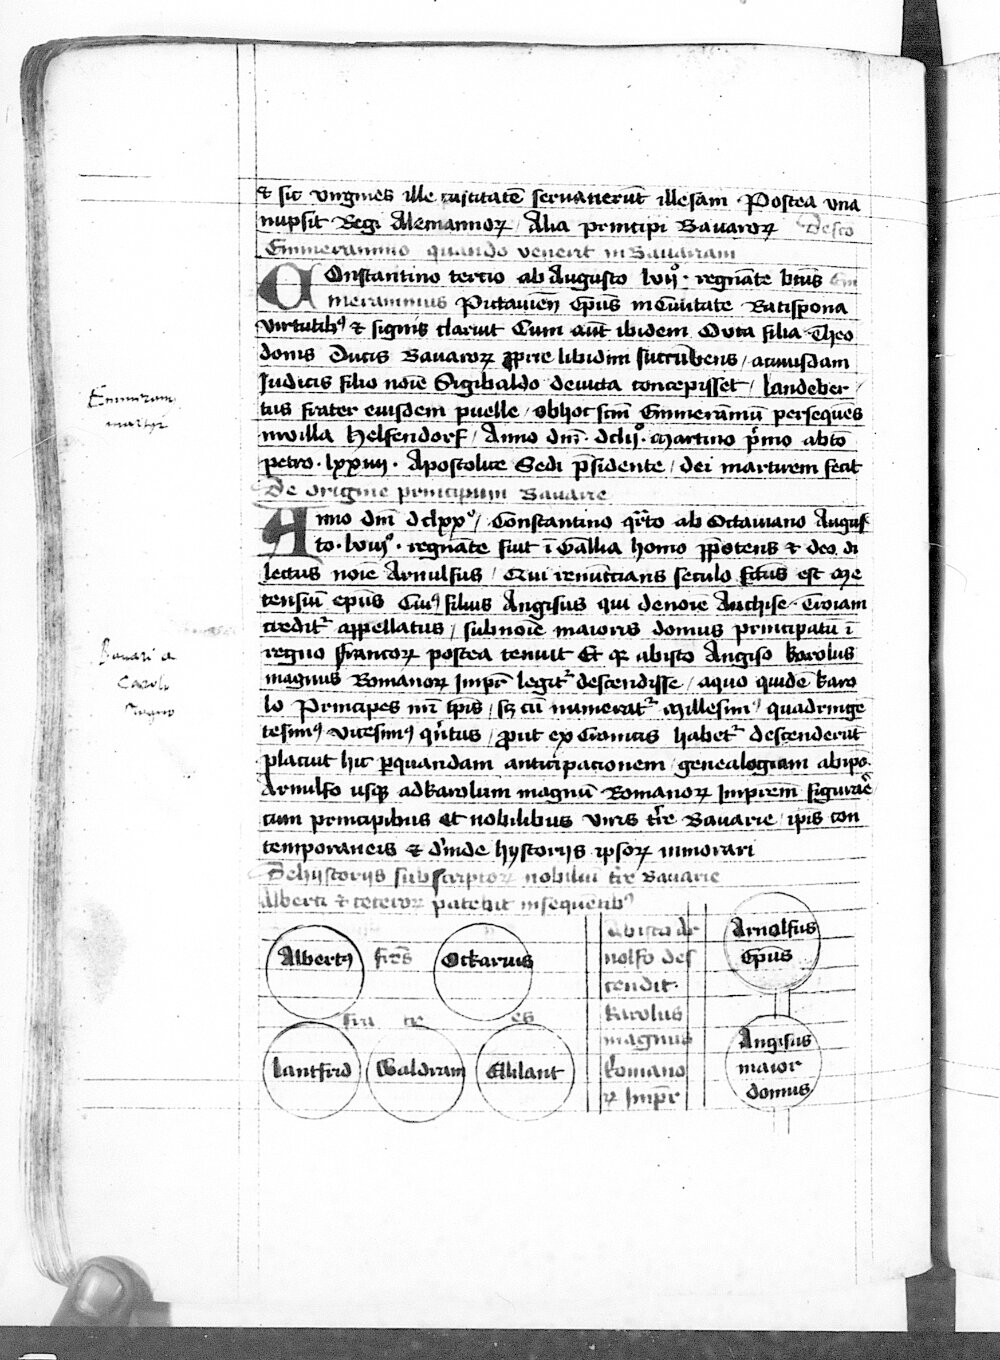 & sic virgines ille castitatē servaverūt illesam · Postea una
nupsit Regi Alemannoꝝ / Alia principi Bavaroꝝ De scō
Emmerammo quando venerit in Bavariam
Constantino tertio ab Augusto lvijº · regnāte btūs Em
merammus Pictavien̄ Ep̄us in Civitate Ratispona
virtutibꝰ & signis claruit Cum aūt ibidem Ota filia Theo
donis Ducis Bavaroꝝ ꝓprie libidini succūbens / a cuiusdam
Judicis filio noīe Sigibaldo devicta concepisset / Landeber /
tus frater eiusdem puelle / ob hoc scm̄ Emmeramū perseqūes
in villa Helfendorf / Anno dnī · dclijº · Martino p̄mo ab bto
petro · lxxiiij · Apostolice Sedi p̄sidente / dei martirem fecit
De origine principum Bavarie
Anno dnī dclxxº / Constantino qrto ab Octaviano Augus
to · lviijº · regnāte fuit ī Gallia homo p̄potens & deo di
lectus noīe Arnulfus / Qui renūccians seculo fctūs est Me
tensiū ep̄us Cuiꝰ filius Angisus qui de noīe Anchise · Troiam
credit᷑ appellatus / sub noīe maioris domus principatū ī
regno francoꝝ postea tenuit Et qꝛ ab isto Angiso karolus
magnus Romanoꝝ Impr̄ legit᷑ descendisse / a quo quidē karo
lo Principes nr̄i tp̄is / sꝫ cū numerat᷑ Millesimꝰ quadringē
tesimꝰ vicesimꝰ qn̄tus / ꝓut ex Cronicis habet᷑ descenderūt
placuit hic ꝑ quandam anticipacionem / genealogiam ab ip̄o
Arnulfo usqꝫ ad karolum magnū Romanoꝝ Impr̄em figurare
cum principibus Et nobilibus viris tr̄re Bavarie / ip̄is con
temporaneis & d'inde hystoriis ipsoꝝ inmorari
De hystoriis subscriptoꝝ nobiliū tr̄e Bavarie
Alberti & ceteroꝝ patebit in sequētibꝰ
Albertꝰ frēs Ockarius
fra tr es
Lantfrid Waldram Elilant
Ab isto Ar
nolfo des
cendit
karolus
magnus
Romano
ꝝ Impr̄
Arnolfus
Ep̄us
Angisus
maior
domus
Emmeram
martyr
Bavari a
Carolo
Magno